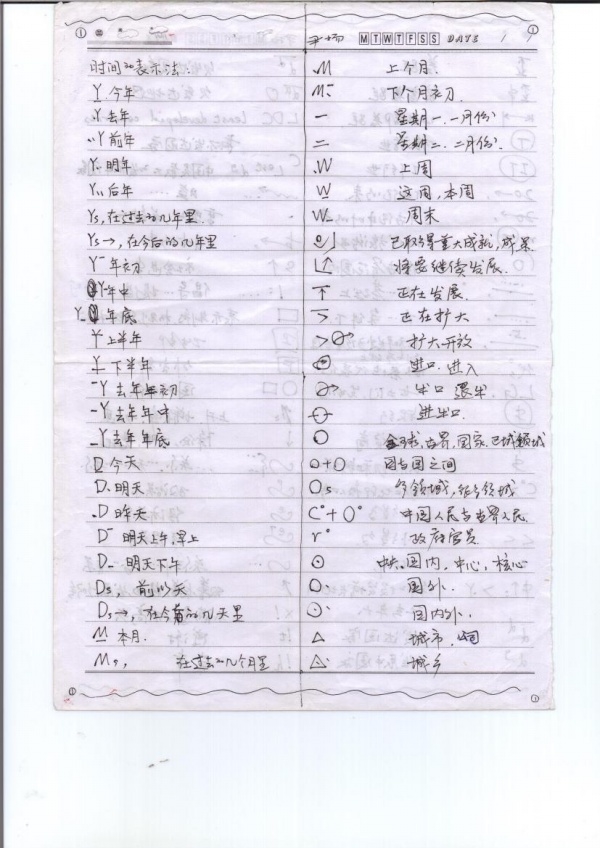 MTWTFSS DATE
时间的表示法:
Y 今年
.Y 去年
..Y 前年
Y. 明年
Y.. 后年
Ys, 在过去的几年里
Ys→, 在今后的几年里
Y⁻ 年初
Y 年中
Y_ 年底
Y 上半年
Y 下半年
⁻Y 去年年初
-Y 去年年中
_Y 去年年底
D 今天
D. 明天
.D 昨天
D⁻ 明天上午,早上
D_ 明天下午
Ds, 前几天
Ds→, 在今后的几天里
M 本月.
在过去的几个月里
.M 上个月.
M⁻ 下个月初.
一 星期一.一月份
二 星期二.二月份
.W 上周
W 这周,本周
W_ 周末
已取得重大成就,成果
将要继续发展.
正在发展.
> 正在扩大
扩大开放
进口.进入
出口 退出
进出口.
○ 全球,世界,国家.区域领域
○+○ 国与国之间
○s 各领域,
C°+○° 中国人民与世界人民.
r° 政府官员
⊙ 中央.国内,中心,核心
○. 国外.
⊙. 国内外.
△ 城市.
△. 城乡